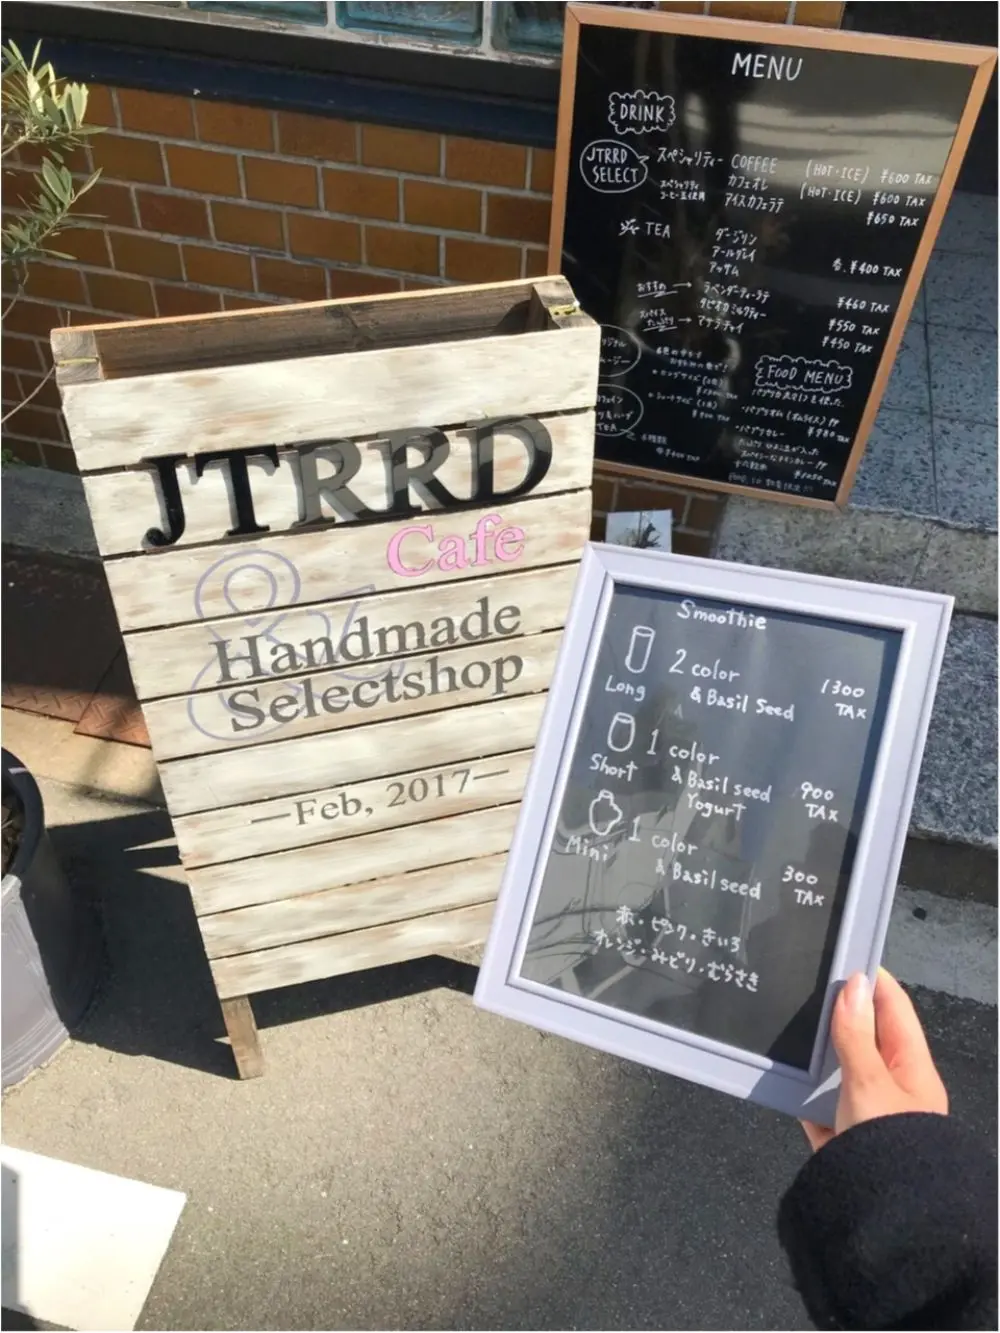 JTRRD
Cafe
&
Handmade
Selectshop
—Feb, 2017—
MENU
DRINK
JTRRD
SELECT
スペシャリティー COFFEE (HOT・ICE) ¥600 TAX
スペシャリティ
コーヒー豆使用
カフェオレ (HOT・ICE) ¥600 TAX
アイスカフェラテ ¥650 TAX
TEA
ダージリン
アールグレイ
アッサム 各.¥400 TAX
おすすめ → ラベンダーティーラテ ¥460 TAX
タピオカミルクティー ¥550 TAX
スパイス
たっぷり → マサラチャイ ¥450 TAX
FOOD MENU
・パプリカレー
Smoothie
Long
2 color
& Basil Seed
1300
TAX
Short
1 color
& Basil seed
Yogurt
900
TAX
Mini
1 color
& Basil seed
300
TAX
赤・ピンク・きいろ
オレンジ・みどり・むらさき